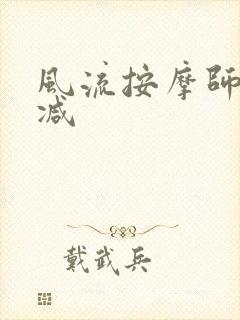 風流按摩師
減
戴武兵